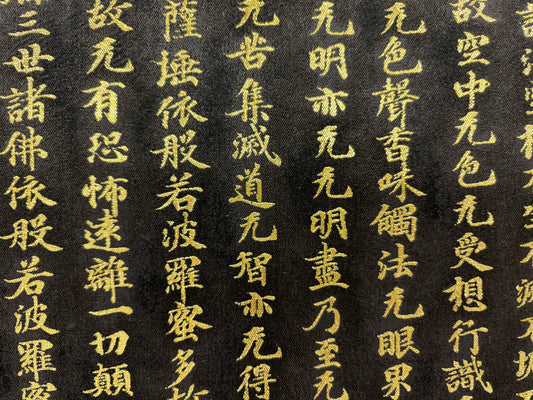 法空相不生不滅不垢
故空中无色无受想行識
无色聲香味觸法无眼界
无明亦无无明盡乃至无
无苦集滅道无智亦无得
薩埵依般若波羅蜜多故
故无有恐怖遠離一切顛
三世諸佛依般若波羅蜜